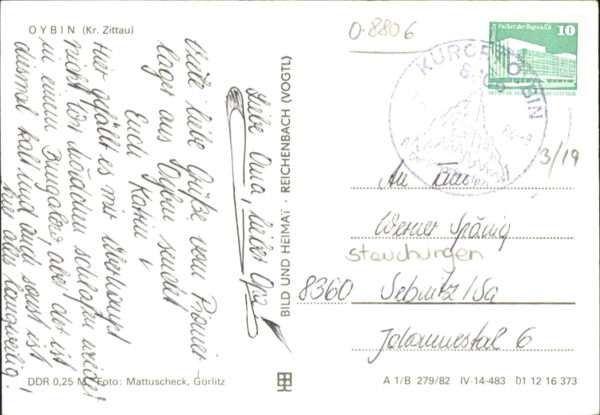 OYBIN (Kr. Zittau)
Liebe Oma, lieber Opa!
Viele liebe Grüße vom Pionier-
lager aus Oybin sendet
Euch Katrin.
Hier gefällt es mir überhaupt
nicht. Wir Mädchen schlafen wieder
in einem Bungalow, aber das ist
diesmal kalt und auch sonst ist
hier alles langweilig!
DDR 0,25 M Foto: Mattuscheck, Görlitz
BILD UND HEIMAT · REICHENBACH (VOGTL)
0-8806
Palast der Republik
10
KURORT OYBIN
3/19
An Fam.
Werner
Stauchungen
8360 Sebnitz/Sa
Johannestal 6
A 1/B 279/82 IV-14-483 01 12 16 373